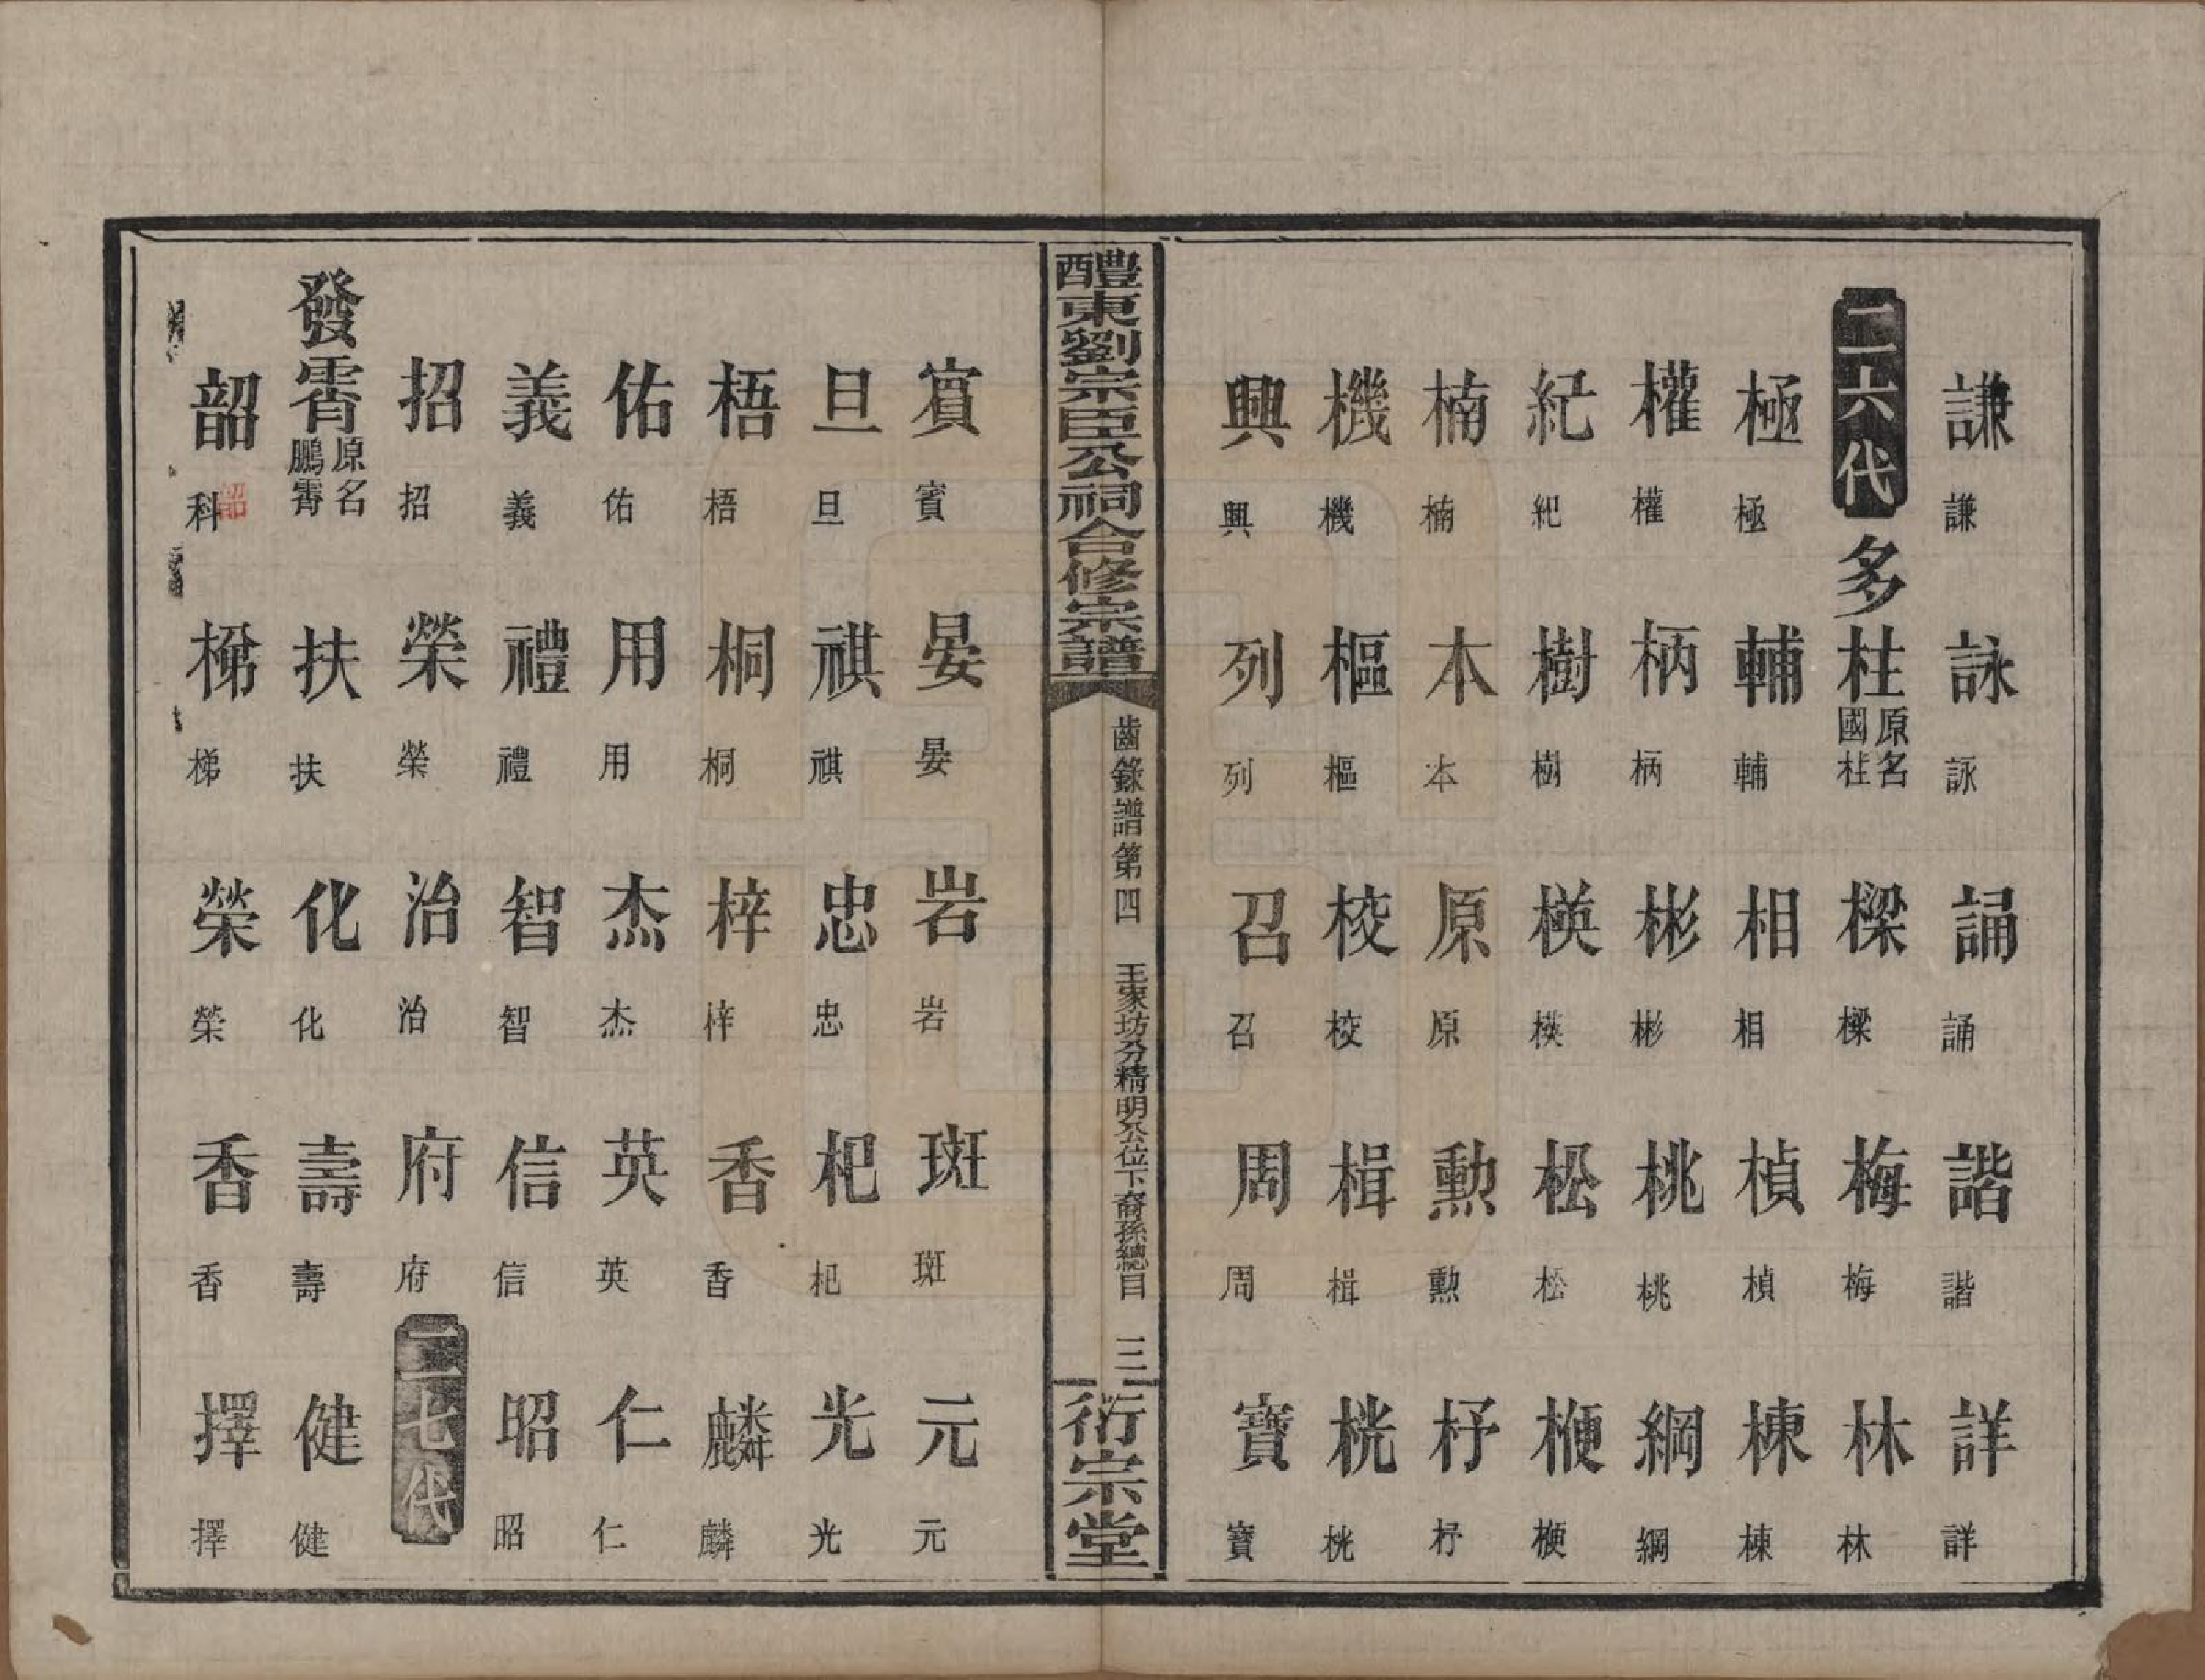 謙 謙 詠 詠 誦 誦 諧 諧 詳 詳
二六代 多柱 原名國柱 樑 樑 梅 梅 林 林
極 極 輔 輔 相 相 楨 楨 棟 棟
權 權 柄 柄 彬 彬 桃 桃 綱 綱
紀 紀 樹 樹 楧 楧 松 松 梗 梗
楠 楠 本 本 原 原 勲 勲 杼 杼
機 機 樞 樞 校 校 楫 楫 桄 桄
興 興 列 列 召 召 周 周 寶 寶
醴東劉宗臣公祠合修宗譜
齒錄譜第四 王家坊分精明公位下裔孫總目 三
衍宗堂
賓 賓 晏 晏 岩 岩 斑 斑 元 元
旦 旦 祺 祺 忠 忠 杞 杞 光 光
梧 梧 桐 桐 梓 梓 香 香 麟 麟
佑 佑 用 用 杰 杰 英 英 仁 仁
義 義 禮 禮 智 智 信 信 昭 昭
招 招 榮 榮 治 治 府 府 二七代
發霄 原名鵬霄 扶 扶 化 化 壽 壽 健 健
韶 科 韶 梯 梯 榮 榮 香 香 擇 擇